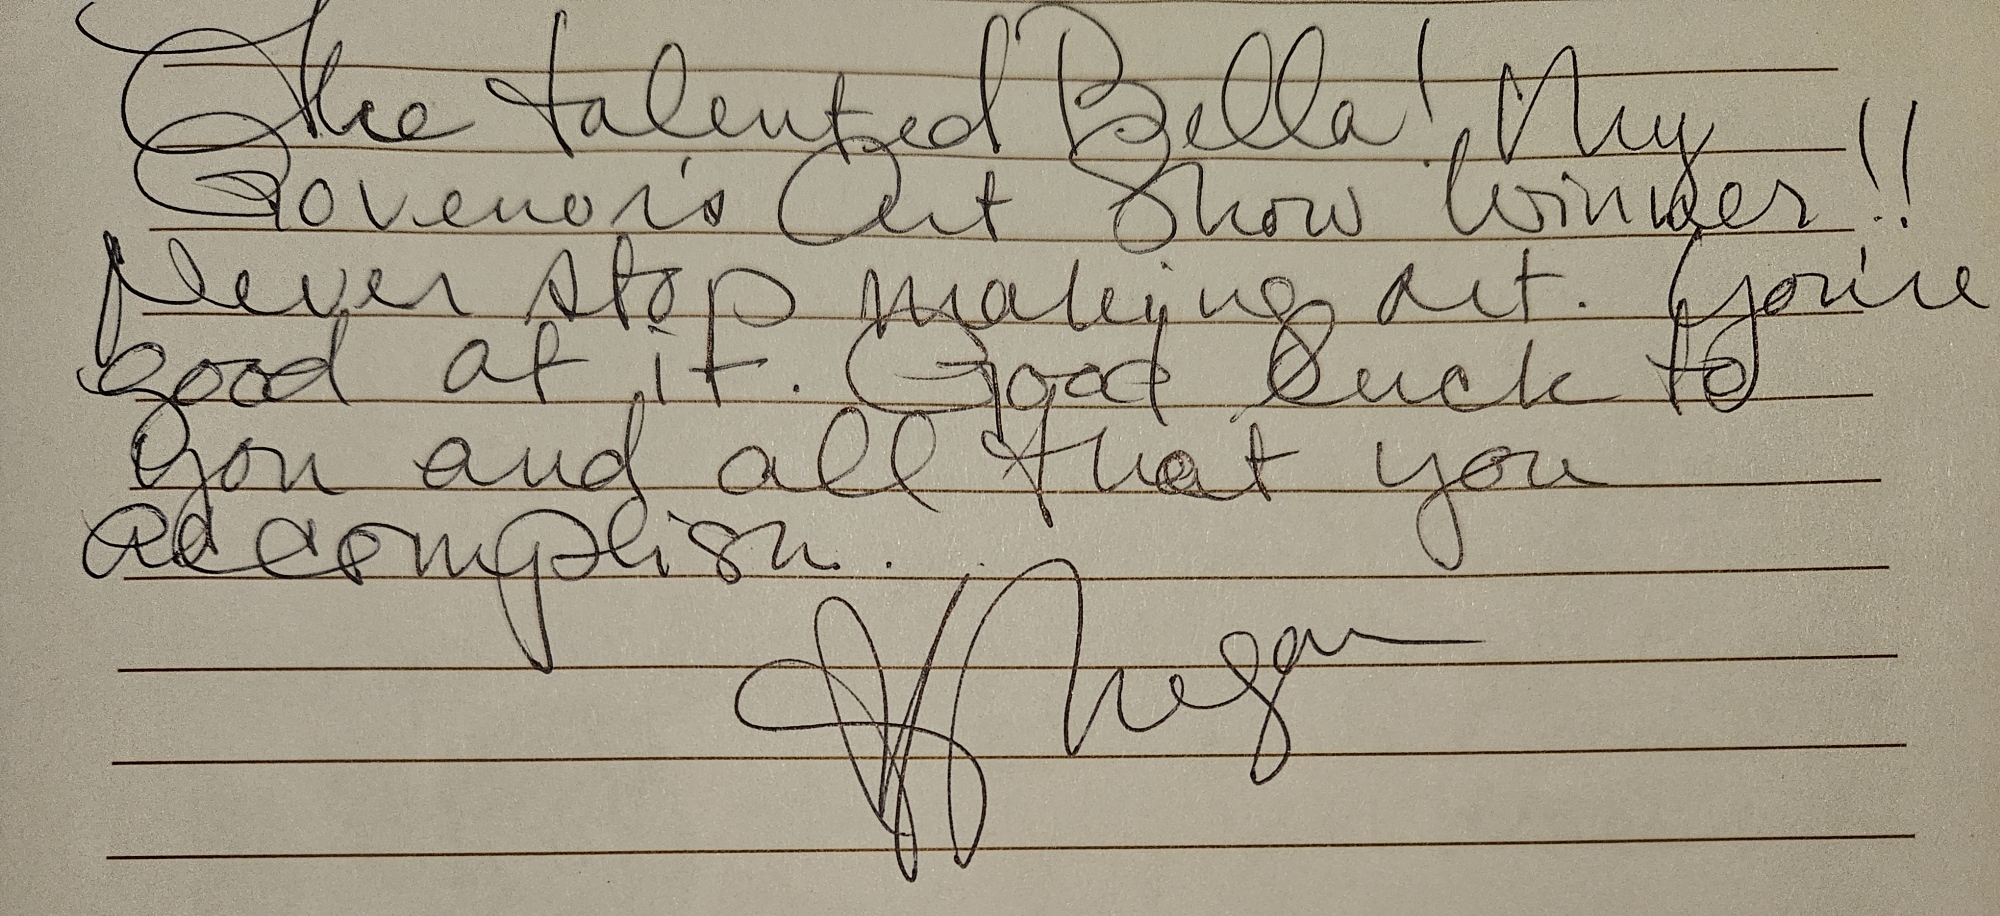 The talented Bella! My
Govenor's Art Show Winner!!
Never stop making art. You're
good at it. Good luck to
you and all that you
accomplish.